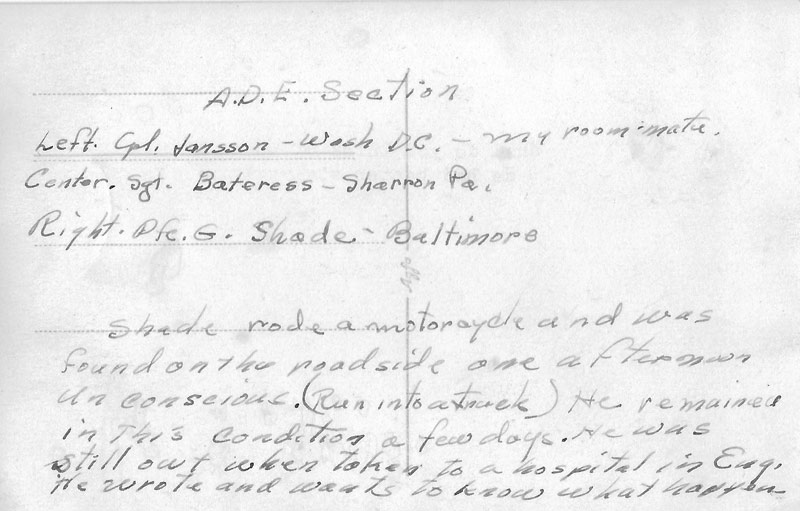 A.D.E. Section
Left. Cpl. Jansson - Wash D.C. - my room-mate.
Center. Sgt. Bateress - Sharron Pa.
Right. Pfc. G. Shade - Baltimore
Shade rode a motorcycle and was
found on the roadside one afternoon
un conscious. (Run into a truck) He remained
in this condition a few days. He was
still out when taken to a hospital in Eng.
He wrote and wants to know what happen